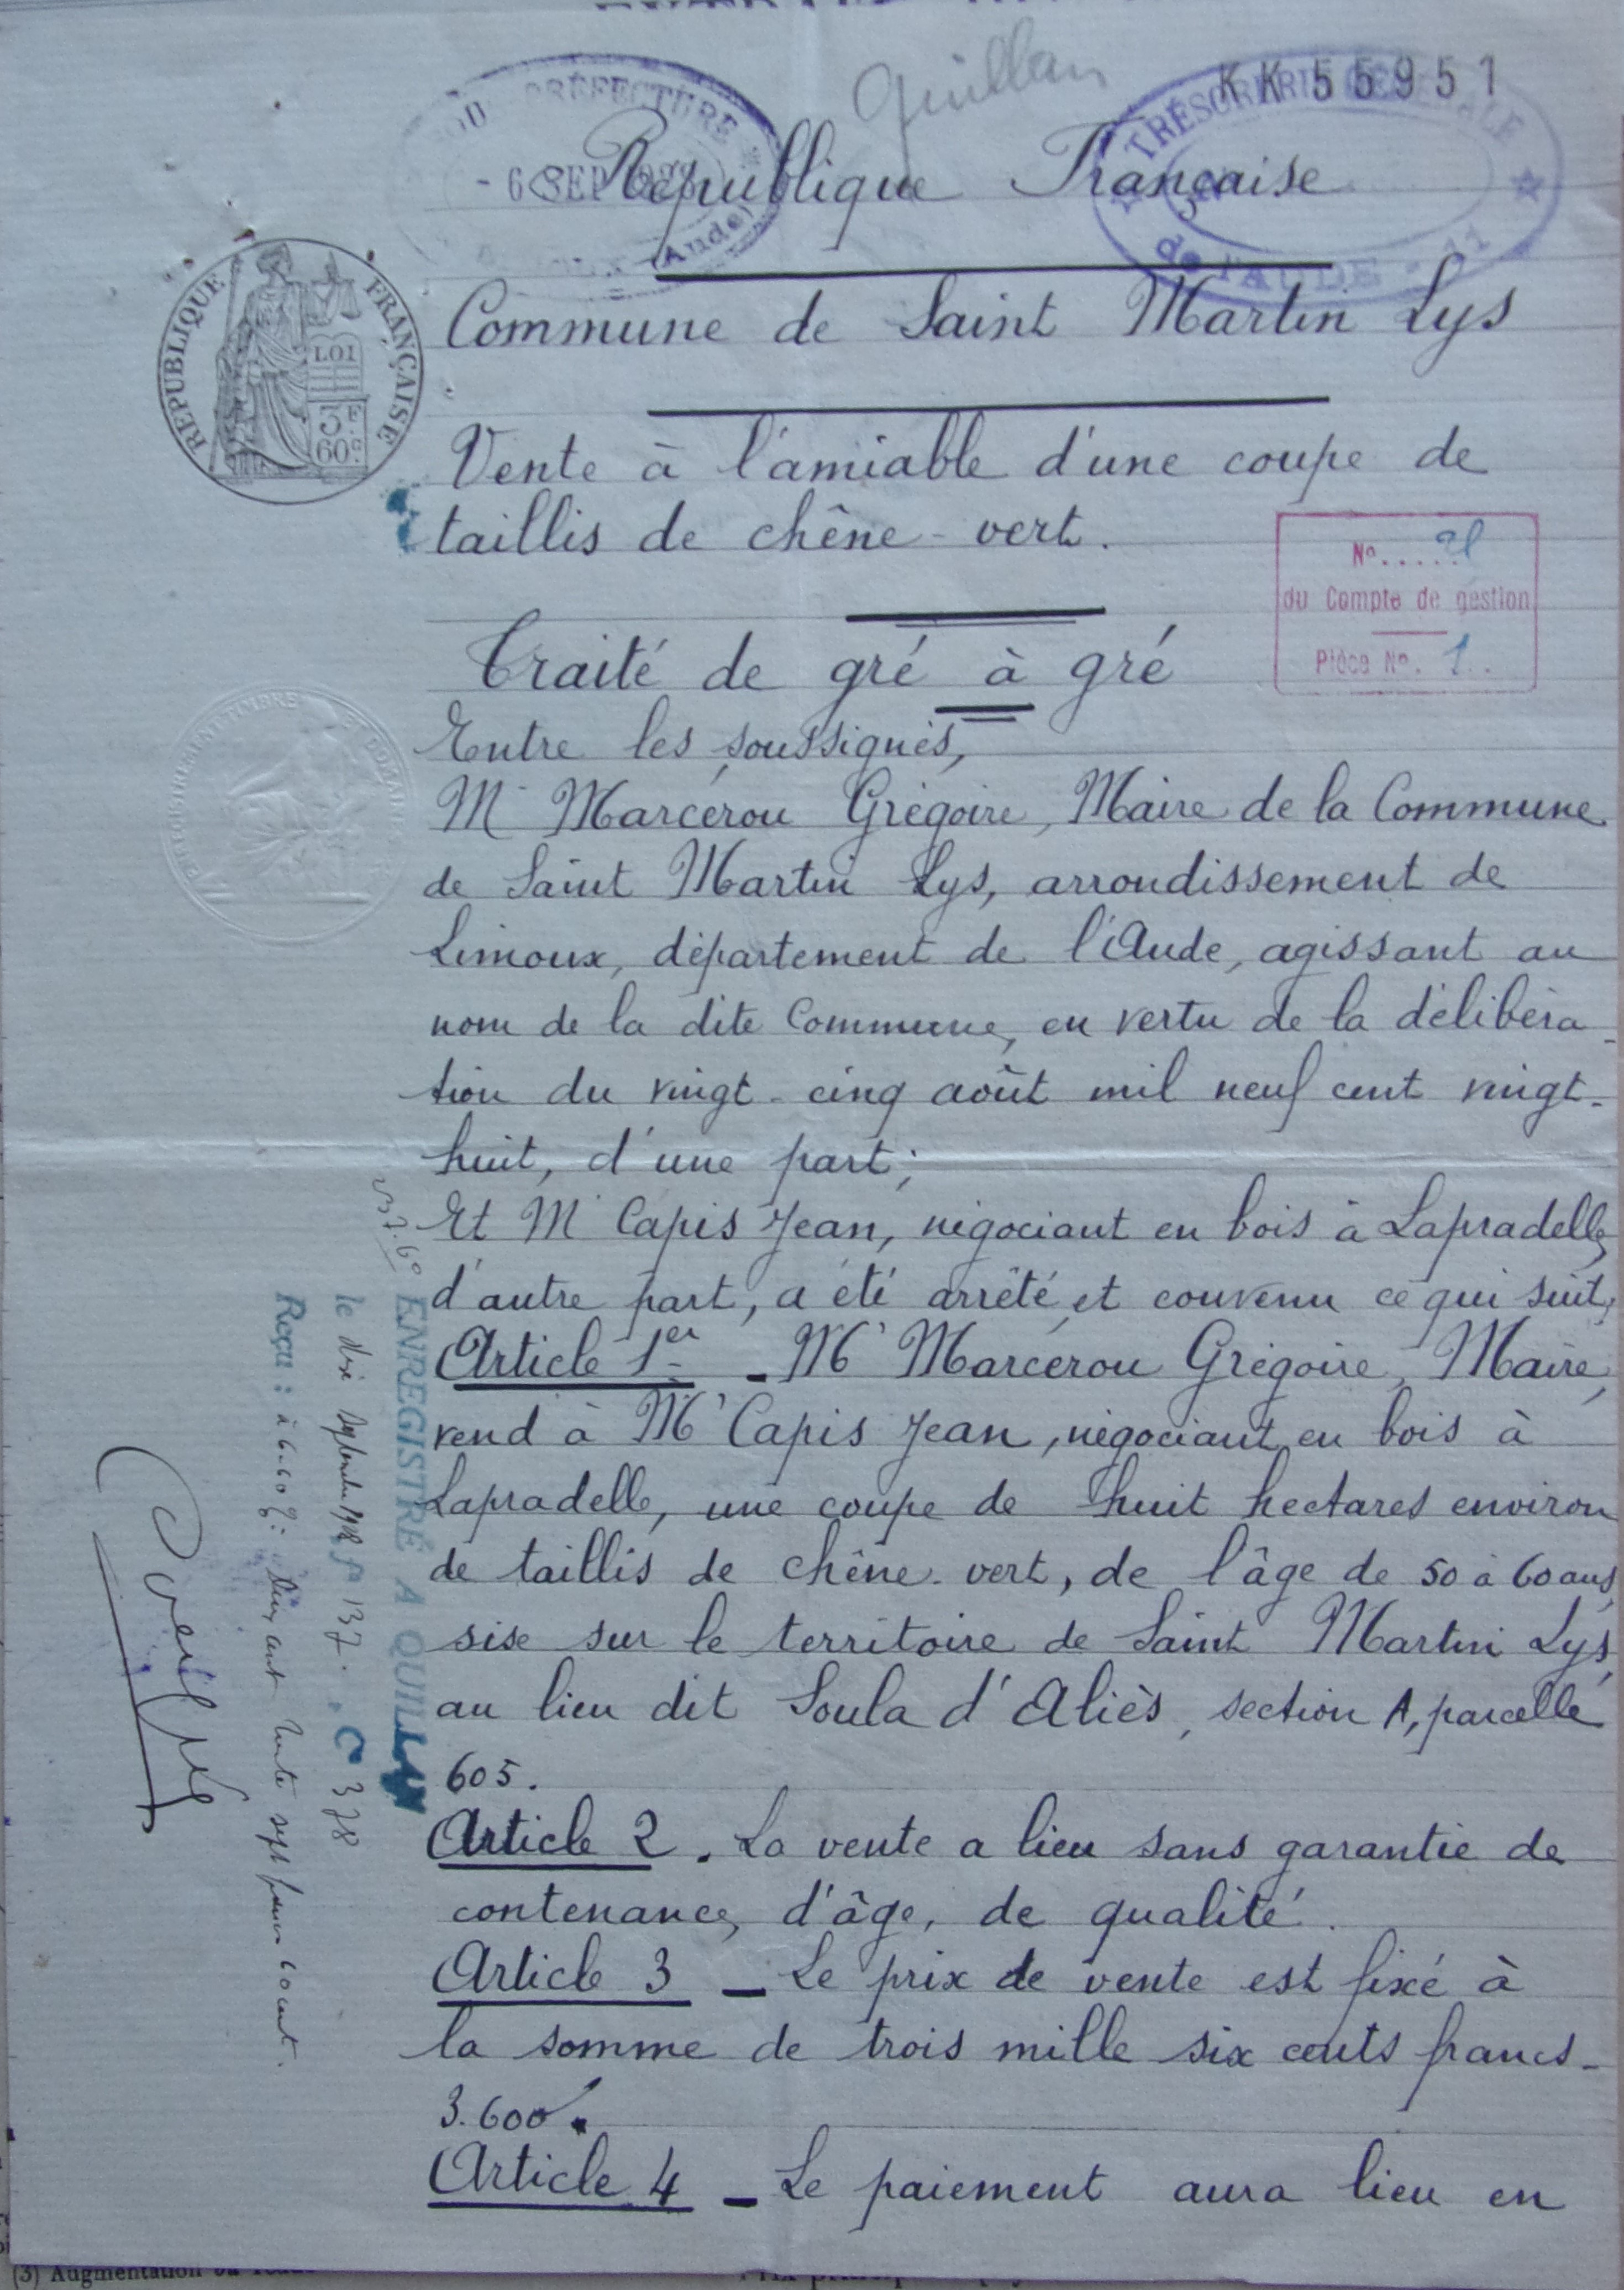 Quillan
KK 55951
SOUS PRÉFECTURE
- 6 SEP 1928
(Aude)
TRÉSORERIE GÉNÉRALE
de l'AUDE - 11
République Française
RÉPUBLIQUE FRANÇAISE
LOI
3F
60c
Commune de Saint Martin Lys
Vente à l'amiable d'une coupe de
taillis de chêne-vert.
No.....
du Compte de gestion
Pièce No. 1..
Traité de gré à gré
Entre les soussignés,
Mr Marcérou Grégoire, Maire de la Commune
de Saint Martin Lys, arrondissement de
Limoux, département de l'Aude, agissant au
nom de la dite Commune, en vertu de la délibéra-
tion du vingt-cinq août mil neuf cent vingt-
huit, d'une part;
Et Mr Capis Jean, négociant en bois à Lapradelle,
d'autre part, a été arrêté et convenu ce qui suit:
Article 1er - Mr Marcérou Grégoire, Maire,
vend à Mr Capis Jean, négociant en bois à
Lapradelle, une coupe de huit hectares environ
de taillis de chêne-vert, de l'âge de 50 à 60 ans,
sise sur le territoire de Saint Martin Lys,
au lieu dit Soula d'Aliès, section A, parcelle
605.
Article 2. La vente a lieu sans garantie de
contenance, d'âge, de qualité.
Article 3 - Le prix de vente est fixé à
la somme de trois mille six cents francs-
3.600f.
Article 4 - Le paiement aura lieu en
237.60
ENREGISTRÉ A QUILLAN
le dix septembre 1928 F° 137. C 378
Reçu : à 6.60 %: deux cent trente sept francs 60 cent.
(3) Augmentation ou